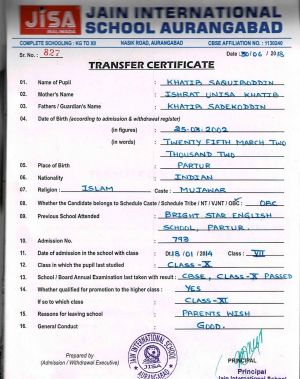 JISA
JAIN INTERNATIONAL
SCHOOL AURANGABAD
COMPLETE SCHOOLING : KG TO XII NASIK ROAD, AURANGABAD CBSE AFFILIATION NO. : 1130240
Sr. No. : 827 Dt. 30/06 / 2018
TRANSFER CERTIFICATE
01. Name of Pupil KHATIB SAGUIRODDIN
02. Mother's Name ISHRAT UNISA KHATIB
03. Fathers / Guardian's Name KHATIB SADEKODDIN
04. Date of Birth (according to admission & withdrawal register)
(in figures) 25-03-2002
(in words) TWENTY FIFTH MARCH TWO
THOUSAND TWO
05. Place of Birth PARTUR
06. Nationality INDIAN
07. Religion : ISLAM Caste : MUJAWAR
08. Whether the Candidate belongs to Schedule Caste / Schedule Tribe / NT / VJNT / OBC : OBC
09. Previous School Attended BRIGHT STAR ENGLISH
SCHOOL, PARTUR.
10. Admission No. 793
11. Date of admission in the school with class Dt 18/01/2014 Class VII
12. Class in which the pupil last studied CLASS-X
13. School / Board Annual Examination last taken with result : CBSE, CLASS-X PASSED
14. Whether qualified for promotion to the higher class : YES
If so to which class CLASS-XI
15. Reasons for leaving school PARENTS WISH
16. General Conduct GOOD.
Prepared by
(Admission / Withdrawal Executive)
JAIN INTERNATIONAL SCHOOL
JISA
AURANGABAD
PRINCIPAL
Principal
Jain International School